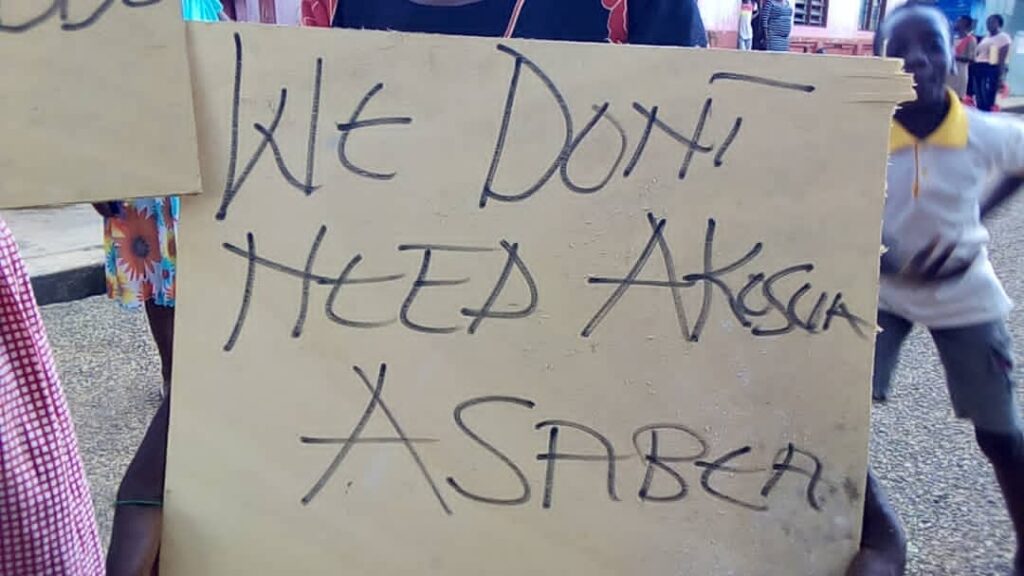 WE DON'T
NEED AKOSUA
ASABEA